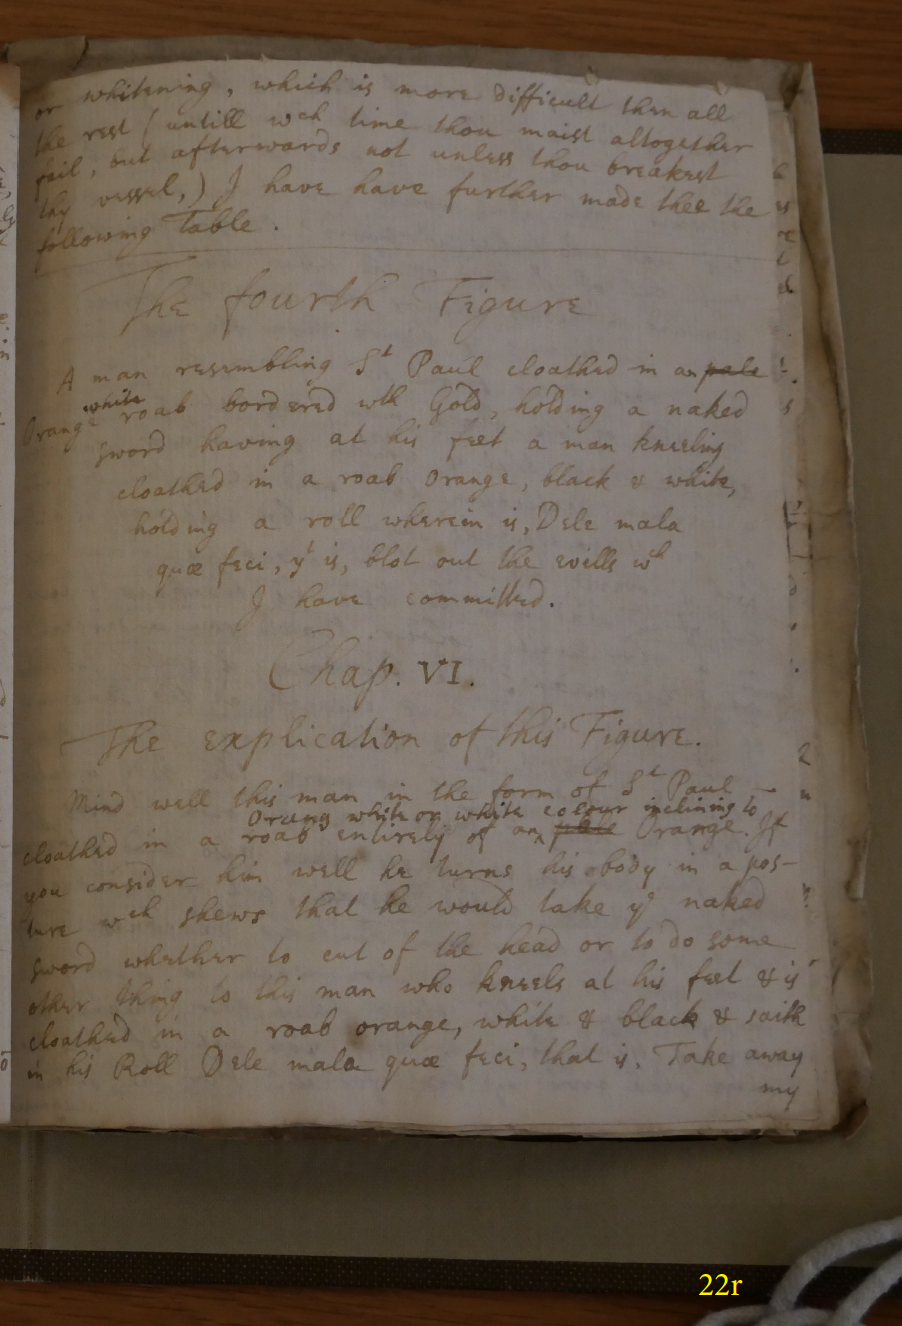 or whitening, which is more difficult then all
the rest (untill wch time thou maist altogether
fail, but afterwards not unless thou breakest
thy vessel,) I have have further made thee the
following Table.
The fourth Figure
A man resembling St Paul cloathed in an pale
white
Orange roab bordered wth Gold, holding a naked
sword having at his feet a man kneeling
cloathed in a roab orange, black & white,
holding a roll wherein is, Dele mala
quæ feci, yt is, blot out the evills wch
I have committed.
Chap. VI.
The explication of this Figure.
Mind well this man in the form of St Paul
Orang white or white colour inclining to
cloathed in a roab entirely of an pale Orange. If
you consider him well he turns his body in a pos-
ture wch shews that he would take ye naked
sword whether to cut of the head or to do some
other thing to this man who kneels at his feet & is
cloathed in a roab orange, white & black & saith
in his Roll Dele mala quæ feci, that is, Take away
my
22r